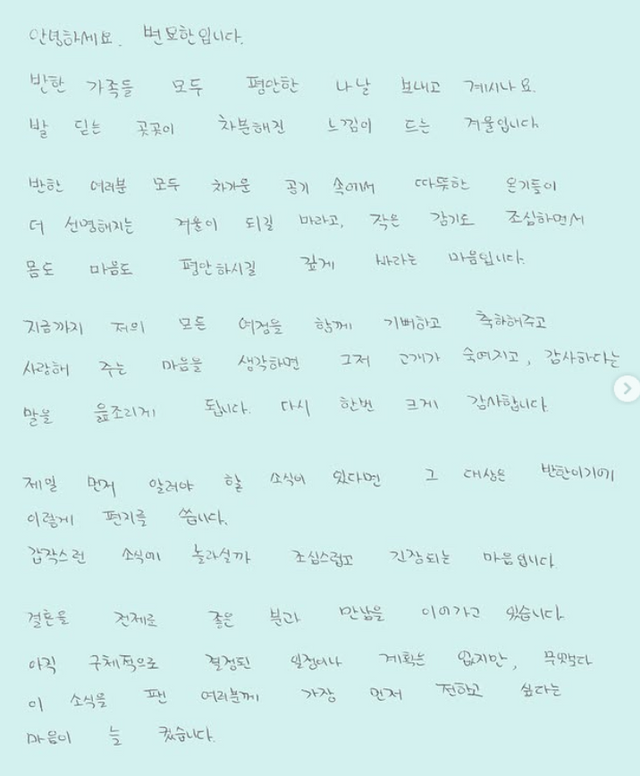 안녕하세요. 변요한입니다.
반한 가족들 모두 평안한 나날 보내고 계시나요.
발 딛는 곳곳이 차분해진 느낌이 드는 겨울입니다
반한 여러분 모두 차가운 공기 속에서 따뜻한 온기들이
더 선명해지는 겨울이 되길 바라고, 작은 감기도 조심하면서
몸도 마음도 평안하시길 깊게 바라는 마음입니다.
지금까지 저의 모든 여정을 함께 기뻐하고 축하해주고
사랑해 주는 마음을 생각하면 그저 고개가 숙여지고, 감사하다는
말을 읊조리게 됩니다. 다시 한번 크게 감사합니다
제일 먼저 알려야 할 소식이 있다면 그 대상은 반한이기에
이렇게 편지를 씁니다.
갑작스런 소식에 놀라실까 조심스럽고 긴장되는 마음입니다
결혼을 전제로 좋은 분과 만남을 이어가고 있습니다
아직 구체적으로 결정된 일정이나 계획은 없지만, 무엇보다
이 소식을 팬 여러분께 가장 먼저 전하고 싶다는
마음이 늘 컸습니다.